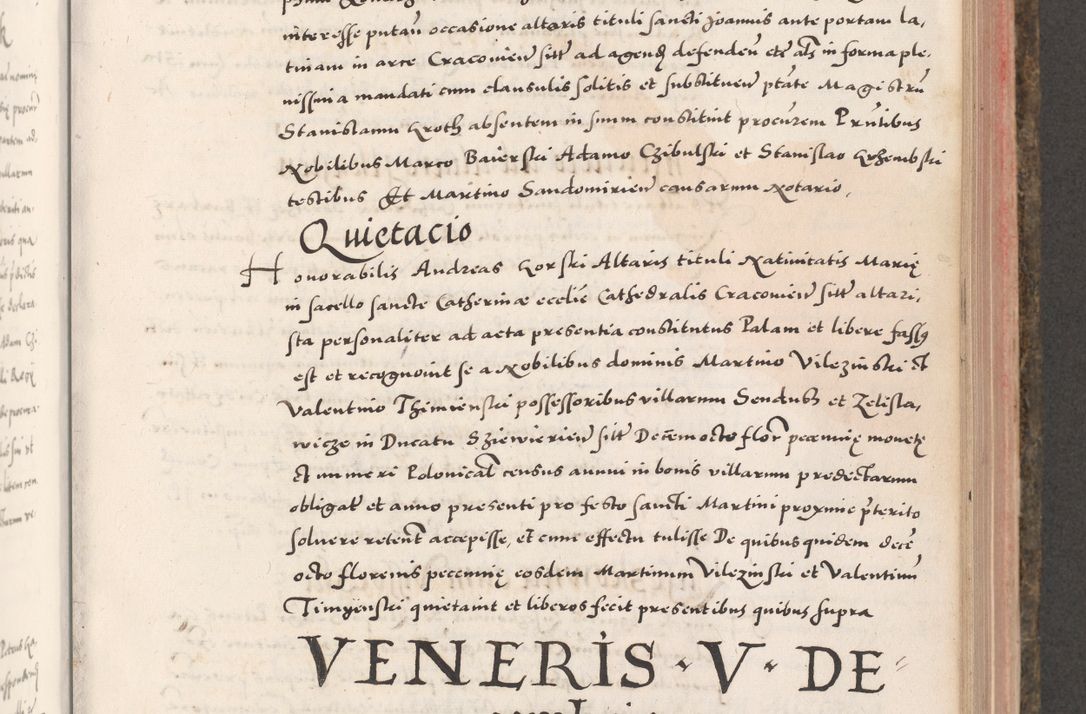 interesse putan̄ occasione altaris tituli sancti Joannis ante portam la,
tinam in arce Cracovien̄ sitt̄ ad agend̄ defenden̄ etc̄ als̄ in forma ple,
nissima mandati cum clausulis solitis et substituen̄ ptāte Magistrū
Stanislaum Kroth absentem in suum constituit procurem Prn̄tibus
Nobilibus Marco Baierski Adamo Czibulski et Stanislao Krzembski
testibus Et Martino Sandomirien̄ causarum Notario.
Quietacio
Honorabilis Andreas Gorski Altaris tituli Nativitatis Marię
in sacello sancte Catherinæ ecclīe Cathedralis Cracovien̄ sitt̄ altari,
sta personaliter ad acta presentia constitutus Palam et libere fassus
est et recognovit se a Nobilibus dominis Martino Vilezinski et
Valentino Thimienski possessoribus villarum Sendusz et Zelisla,
wicze in Ducatu Sziewierien̄ sitt̄ Decem octo flor̄ pecunię monetę
et numeri Polonical̄ census annui in bonis villarum predictarum
obligat̄ et anno presenti pro festo sancti Martini proxime p̄terito
solvere retent̄ accepisse, et cum effectu tulisse De quibus quidem decē
octo florenis pecunię eosdem Martinum Vilezinski et Valentinū
Timyenski quietavit et liberos fecit presentibus quibus supra
VENERIS · V · DE